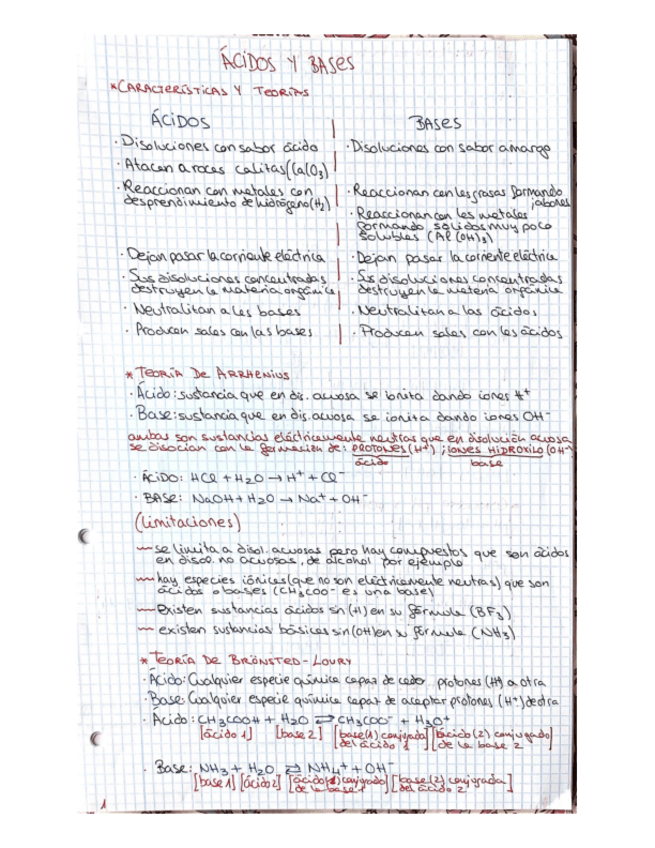 ÁCIDOS Y BASES
*CARACTERÍSTICAS Y TEORÍAS
ÁCIDOS
BASES
· Disoluciones con sabor ácido
· Disoluciones con sabor amargo
· Atacan a roces calitas (CaCO3)
· Reaccionan con metales con
desprendimiento de hidrógeno (H2)
· Reaccionan con les grasas formando
jabones
· Reaccionan con les metales
formando sólidos muy poco
solubles (Al(OH)3)
· Dejan pasar la corriente eléctrica
· Dejan pasar la corriente eléctrica
· Sus disoluciones concentradas
destruyen la materia orgánica
· Ss disoluciones concentradas
destruyen la materia orgánica
· Neutralitan a les bases
· Neutralitan a las ácidos
· Producen sales con las bases
· Producen sales con les ácidos
* TEORÍA DE ARRHENIUS
· Ácido: sustancia que en dis. acuosa se ionita dando iones H+
· Base: sustancia que en dis. acuosa se ionita dando iones OH-
ambas son sustancias eléctricamente neutras que en disolución acuosa
se disocian con la formación de: PROTONES (H+) ; IONES HIDROXILO (OH-)
ácido
base
· ÁCIDO: HCl + H2O → H+ + Cl-
· BASE: NaOH + H2O → Na+ + OH-
(Limitaciones)
se limita a disol. acuosas pero hay compuestos que son ácidos
en disol. no acuosas, de alcohol por ejemplo
hay especies iónicas (que no son eléctricamente neutras) que son
ácidas o bases (CH3COO- es una base)
Existen sustancias ácidas sin (H) en su fórmula (BF3)
existen sustancias básicas sin (OH) en su fórmula (NH3)
* TEORÍA DE BRÖNSTED-LOURY
· Ácido: Cualquier especie química capaz de ceder protones (H+) a otra
· Base: Cualquier especie química capaz de aceptar protones (H+) de otra
· Ácido: CH3COOH + H2O ⇄ CH3COO- + H3O+
[ácido 1] [base 2] [base(1) conjugada] [ácido(2) conjugado]
del ácido 1 de la base 2
· Base: NH3 + H2O ⇄ NH4+ + OH-
[base 1] [ácido 2] [ácido(1) conjugado] [base(2) conjugada]
de la base 1 del ácido 2
1